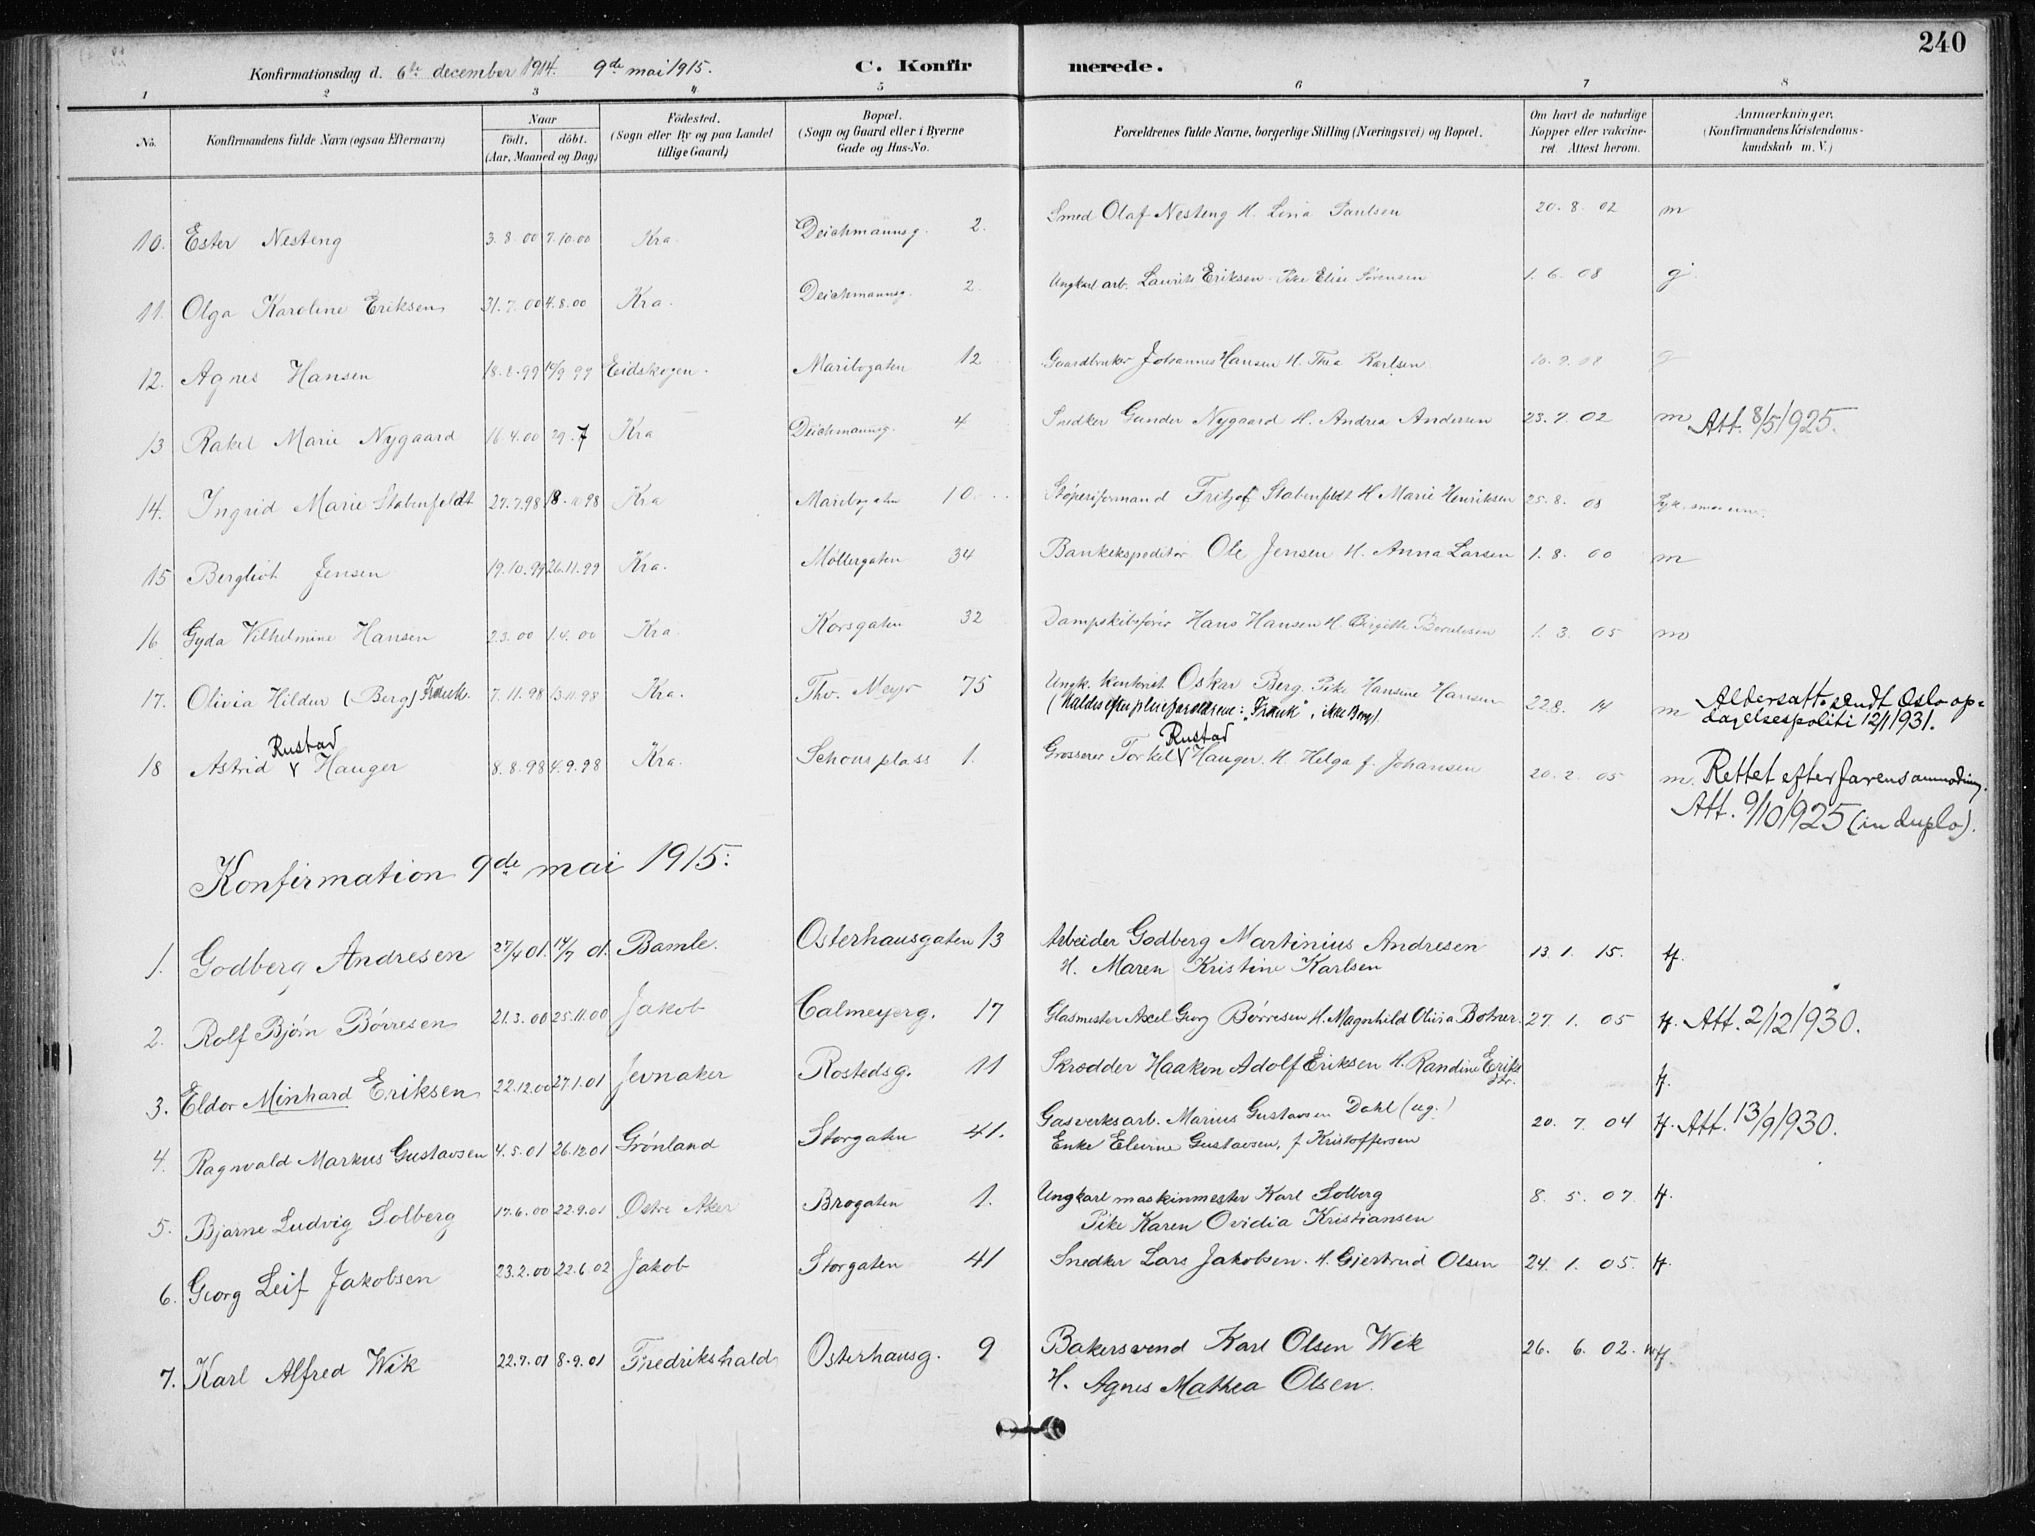 240
Konfirmationsdag d. 6te december 1914. 9de mai 1915. C. Konfirmerede.
1 2 3 4 5 6 7 8
No. Konfirmandens fulde Navn (ogsaa Efternavn) Naar födt, döbt. (Aar, Maaned og Dag) Födested. (Sogn eller By og paa Landet tillige Gaard) Bopæl. (Sogn og Gaard eller i Byerne Gade og Hus-No. Forældrenes fulde Navne, borgerlige Stilling (Næringsvei) og Bopæl. Om havt de naturlige Kopper eller vakcineret Attest herom. Anmærkninger. (Konfirmandens Kristendomskundskab m. V.)
10. Ester Nesteng 3.8.00 7.10.00 Kra. Deichmannsg. 2. Smed Olaf Nesteng H. Lina Paulsen 20. 8. 02 m
11. Olga Karoline Eriksen 31.7.00 4.8.00 Kra. Deichmannsg. 2. Ungkarl arb. Laurits Eriksen Pike Elise Sørensen 1. 6. 08 g
12. Agnes Hansen 18.8.99 17/9 99 Eidskogen. Maribogaten 12 Gaardbruker Johannes Hansen H. Thea Karlsen 10. 9. 08 g
13 Rakel Marie Nygaard 16.4.00 29.7 Kra Deichmannsg. 4 Snedker Gunder Nygaard H. Andrea Andersen 23. 7. 02 m Att. 8/5 1925.
14. Ingrid Marie Stabenfeldt 27.7.98 18.10 98 Kra Maribogaten 10 Støperiformand Fritjof Stabenfeldt H Marie Henriksen 25. 8. 08
15 Bergliot Jensen 19.10.99 26.11.99 Kra. Møllergaten 34 Bankekspeditør Ole Jensen H. Anna Larsen 1. 8. 00 m
16 Gyda Vilhelmine Hansen 2.3.00 1.4.00 Kra. Korsgaten 32 Dampskibsfører Hans Hansen H. Birgitte 1. 3. 05 m
17. Olivia Hildur (Berg) 7.11.98 13.11.98 Kra. Thv. Meyr 75 Ungk. kontorist Oskar Berg. Pike Hansine Hansen
(Kaldes efter pleieforældrene: , ikke Berg) 22.8. 14 m Aldersatt. sendt Oslo opdagelsespoliti 12/1 1931.
18 Astrid Rustad Hauger 8.8.98 4.9.98 Kra. Schous plass 1. Grosserer Torkel Rustad Hauger. H. Helga f. Johansen 20. 2. 05 m. Rettet efter farens anmodning.
Att. 9/10 1925 (in duplo).
Konfirmation 9de mai 1915:
1. Godberg Andresen 27/4 01. 14/7 01. Bamle. Osterhausgaten 13 Arbeider Godberg Martinius Andresen
H. Maren Kristine Karlsen 13. 1. 15. tf.
2. Rolf Bjørn Børresen 21.3.00 25.11.00 Jakob Calmeyerg. 17 Glasmester Axel Georg Børresen H. Magnhild Olivia Botner. 27. 1. 05 tf. Att. 2/12 1930.
3. Eldor Minhard Eriksen 22.12.00 27.1.01 Jevnaker Rostedsg. 11 Skrædder Haaken Adolf Eriksen H. Randine Eriksdtr. tf.
4. Ragnvald Markus Gustavsen 4.5.01 26.12.01 Grønland Storgaten 41. Gasverksarb. Marius Gustavsen Dahl (ug.)
Enke Elevine Gustavsen, f Kristoffersen 20. 7. 04 tf. Att. 13/9 1930.
5. Bjarne Ludvig Solberg 17.6.00 22.9.01 Østre Aker Brogaten 1. Ungkarl maskinmester Karl Solberg
Pike Karen Ovidia Kristiansen 8. 5. 07. tf.
6. Georg Leif Jakobsen 23.2.00 22.6.02 Jakob Storgaten 41 Snedker Lars Jakobsen. H. Gjertrud Olsen 24. 1. 05. tf.
7. Karl Alfred Wik 22.7.01 8.9.01 Fredrikshald Osterhausg. 9 Bakersvend Karl Olsen Wik
H. Agnes Mathea Olsen. 26. 6. 02.